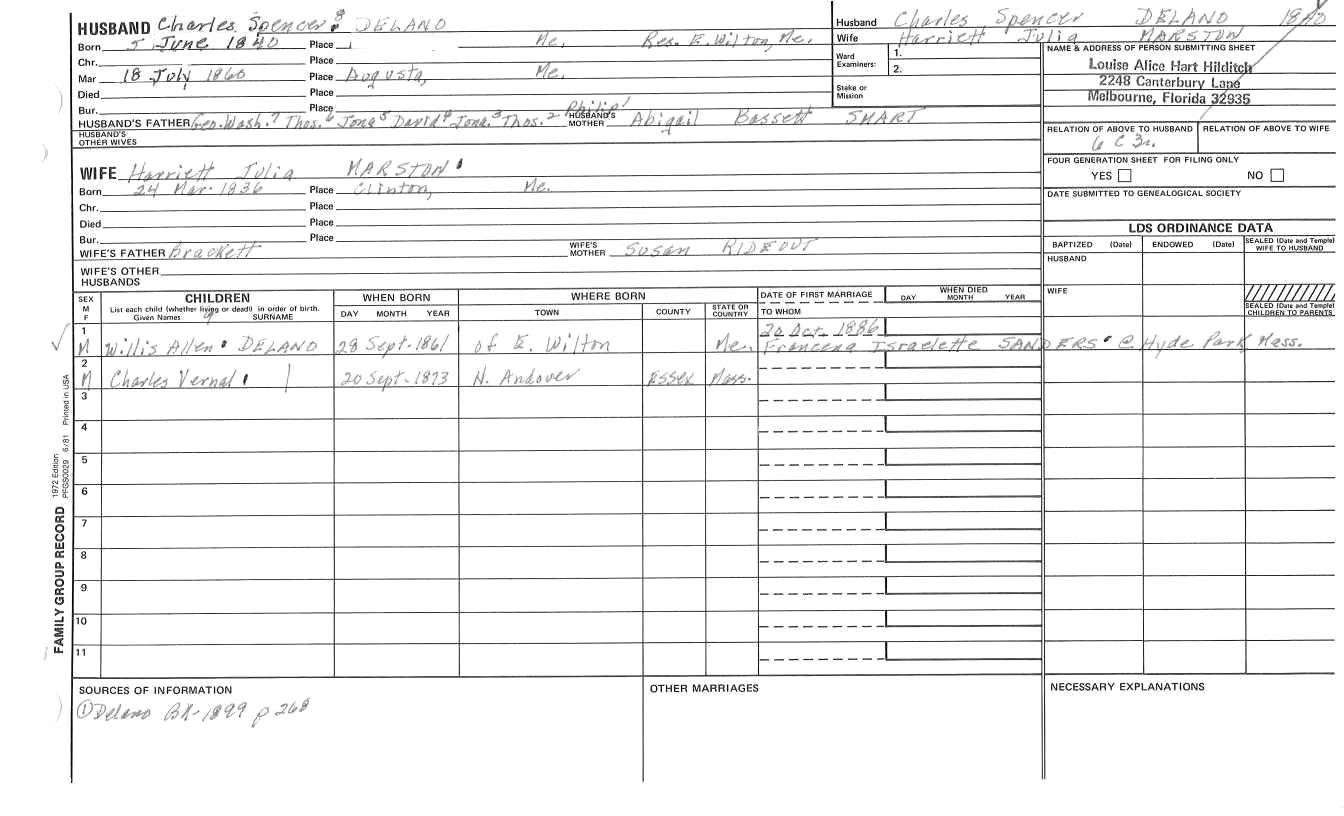 HUSBAND Charles Spencer 8 DELANO
Born 5 June 1840 Place Me, Res. E. Wilton, Me.
Chr. Place
Mar 18 July 1860 Place Augusta, Me.
Died Place
Bur. Place
HUSBAND'S FATHER Geo. Wash.7 Thos.6 Jona5 David4 Jona.3 Thos.2 Philip1 HUSBAND'S MOTHER Abigail Bassett SMART
HUSBAND'S OTHER WIVES
WIFE Harriett Julia MARSTON
Born 24 Mar. 1836 Place Clinton, Me.
Chr. Place
Died Place
Bur. Place
WIFE'S FATHER Brackett WIFE'S MOTHER Susan RIDEOUT
WIFE'S OTHER HUSBANDS
Husband Charles Spencer DELANO 1840
Wife Harriett Julia MARSTON
Ward Examiners: 1.
2.
Stake or Mission
NAME & ADDRESS OF PERSON SUBMITTING SHEET
Louise Alice Hart Hilditch
2248 Canterbury Lane
Melbourne, Florida 32935
RELATION OF ABOVE TO HUSBAND RELATION OF ABOVE TO WIFE
6 C 3r.
FOUR GENERATION SHEET FOR FILING ONLY
YES NO
DATE SUBMITTED TO GENEALOGICAL SOCIETY
LDS ORDINANCE DATA
BAPTIZED (Date) ENDOWED (Date) SEALED (Date and Temple) WIFE TO HUSBAND
HUSBAND
WIFE
SEALED (Date and Temple) CHILDREN TO PARENTS
SEX M F CHILDREN WHEN BORN WHERE BORN DATE OF FIRST MARRIAGE WHEN DIED
List each child (whether living or dead) in order of birth. DAY MONTH YEAR TOWN COUNTY STATE OR COUNTRY TO WHOM DAY MONTH YEAR
Given Names SURNAME
1 20 Oct. 1886
M Willis Allen 9 DELANO 28 Sept. 1861 of E. Wilton Me. Francena Israelette SANDERS @ Hyde Park, Mass.
2
M Charles Vernal 20 Sept. 1873 N. Andover Essex Mass.
3
4
5
6
7
8
9
10
11
FAMILY GROUP RECORD 1972 Edition PFGS0029 6/81 Printed in USA
SOURCES OF INFORMATION
① Delano BK-1899 p 268
OTHER MARRIAGES
NECESSARY EXPLANATIONS